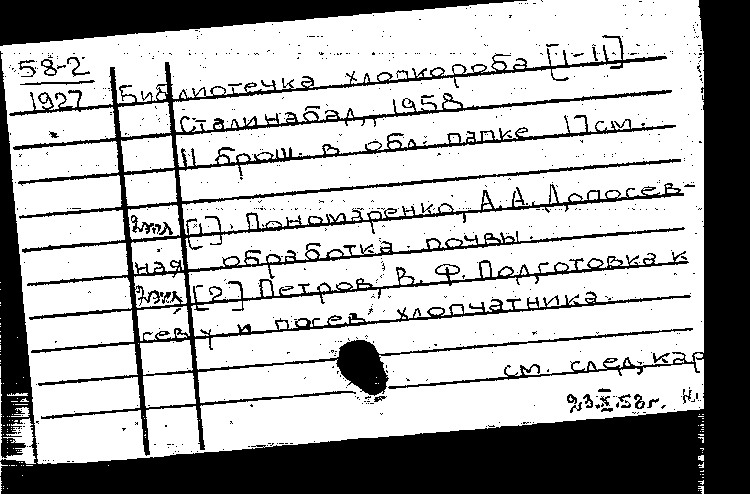 58-2
1927
Библиотечка хлопкороба [1-11]
Сталинабад, 1958
11 брош. в обл. папке 17 см.
2экз [1]. Пономаренко, А. А. Допосев-
ная обработка почвы.
2экз [2] Петров, В. Ф. Подготовка к
севу и посев хлопчатника.
см. след. кар
23.X.58г.